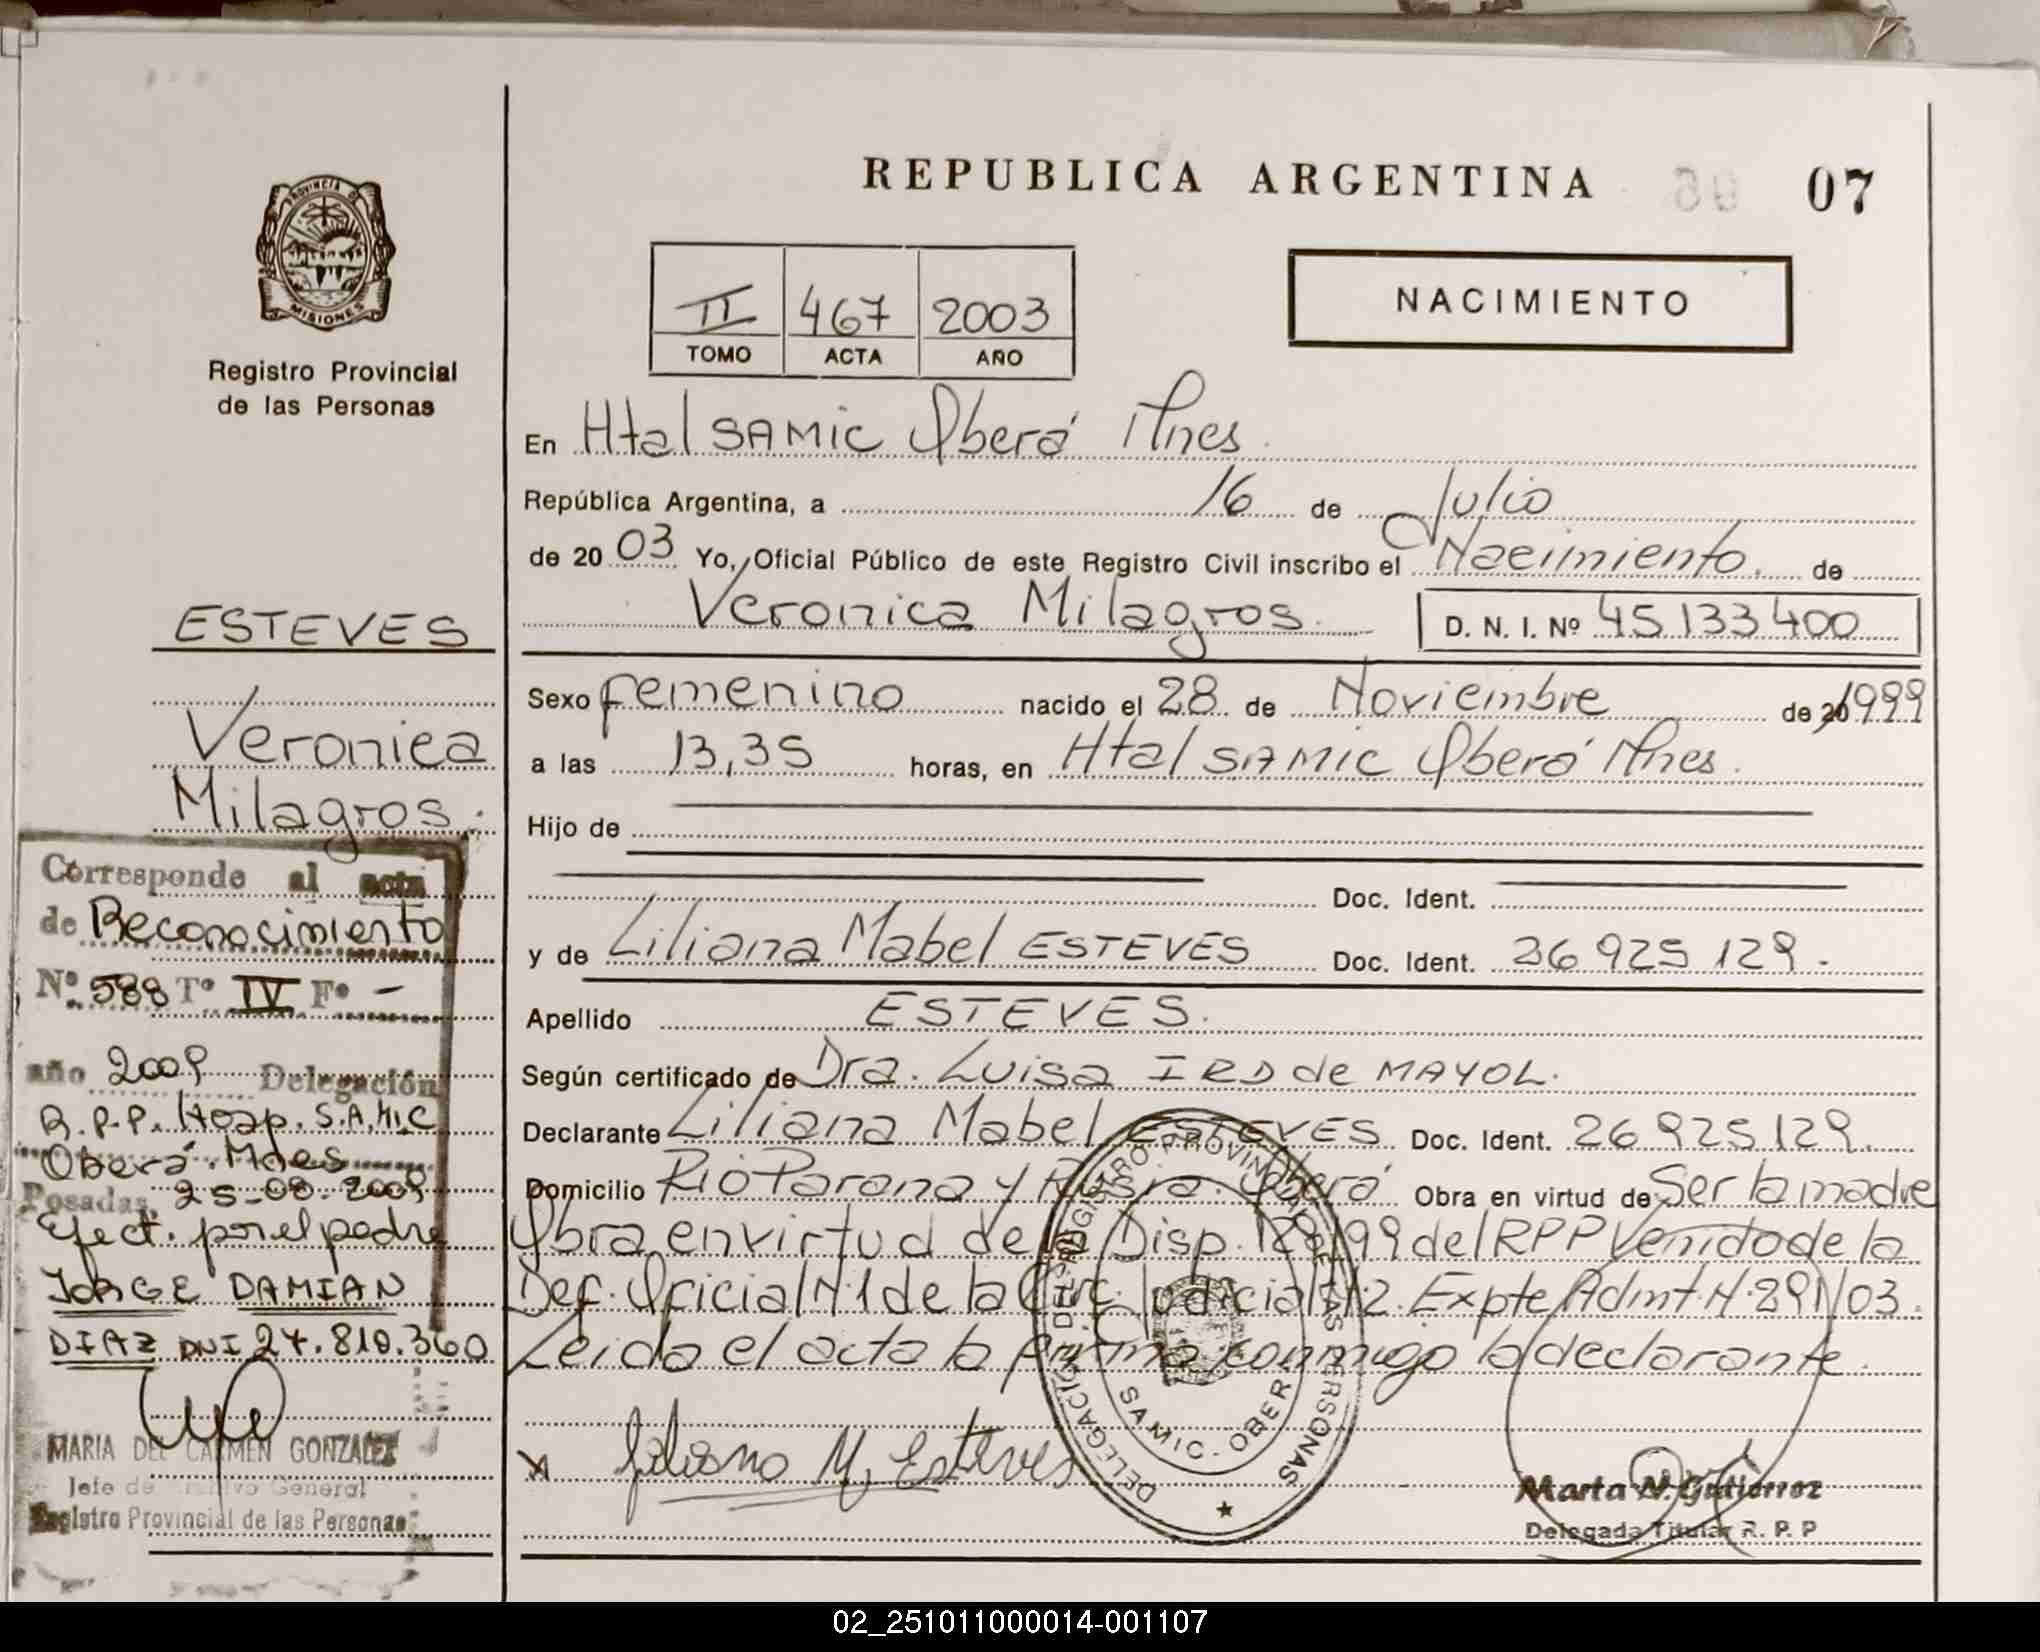 REPUBLICA ARGENTINA 07
PROVINCIA DE
MISIONES
Registro Provincial
de las Personas
II 467 2003
TOMO ACTA AÑO
NACIMIENTO
En Htal SAMIC Oberá Mnes.
República Argentina, a 16 de Julio
de 20 03 Yo, Oficial Público de este Registro Civil inscribo el Nacimiento. de
Veronica Milagros. D. N. I. Nº 45 133 400
Sexo femenino nacido el 28 de Noviembre de 20 1999
a las 13,35 horas, en Htal SAMIC Oberá Mnes.
Hijo de
Doc. Ident.
y de Liliana Mabel ESTEVES Doc. Ident. 26 925 129.
Apellido ESTEVES.
Según certificado de Dra. Luisa IRD de MAYOL.
Declarante Liliana Mabel ESTEVES Doc. Ident. 26 925 129.
Domicilio Rio Parana y Oberá Obra en virtud de Ser la madre
Obra en virtud de la Disp. 128/99 del RPP Venido de la
Def. Oficial N 1 de la Circ. Judicial N 2. Expte Admt. N. 291/03.
Leida el acta la firma conmigo la declarante.
Liliana M. Esteves
Marta N. Gutierrez
Delegada Titular R. P. P
DELEGACIÓN DEL REGISTRO PROVINCIAL DE LAS PERSONAS
SAMIC - OBERÁ
ESTEVES
Veronica
Milagros.
Corresponde al acta
de Reconocimiento
Nº 588 Tº IV Fº -
año 2009 Delegación
R.P.P. Hosp. S.A.M.I.C
Oberá. Mnes
Posadas, 25-08-2009
Efect. por el padre
JORGE DAMIAN
DIAZ DNI 24.810.360
MARIA DEL CARMEN GONZALEZ
Jefe de Archivo General
Registro Provincial de las Personas
02_251011000014-001107